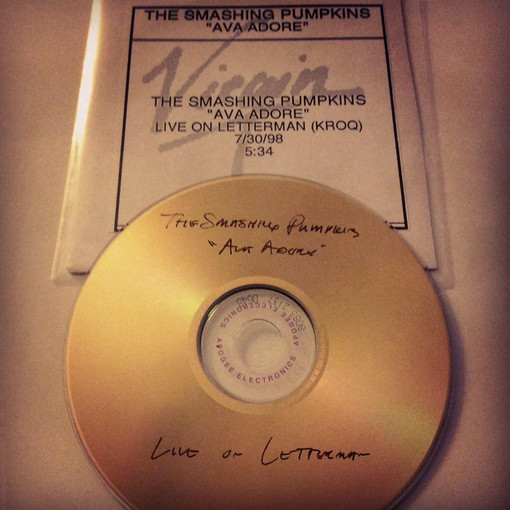 THE SMASHING PUMPKINS
"AVA ADORE"
Virgin
THE SMASHING PUMPKINS
"AVA ADORE"
LIVE ON LETTERMAN (KROQ)
7/30/98
5:34
THE SMASHING PUMPKINS
"AVA ADORE"
APOGEE ELECTRONICS
APOGEE ELECTRONICS
LIVE ON LETTERMAN